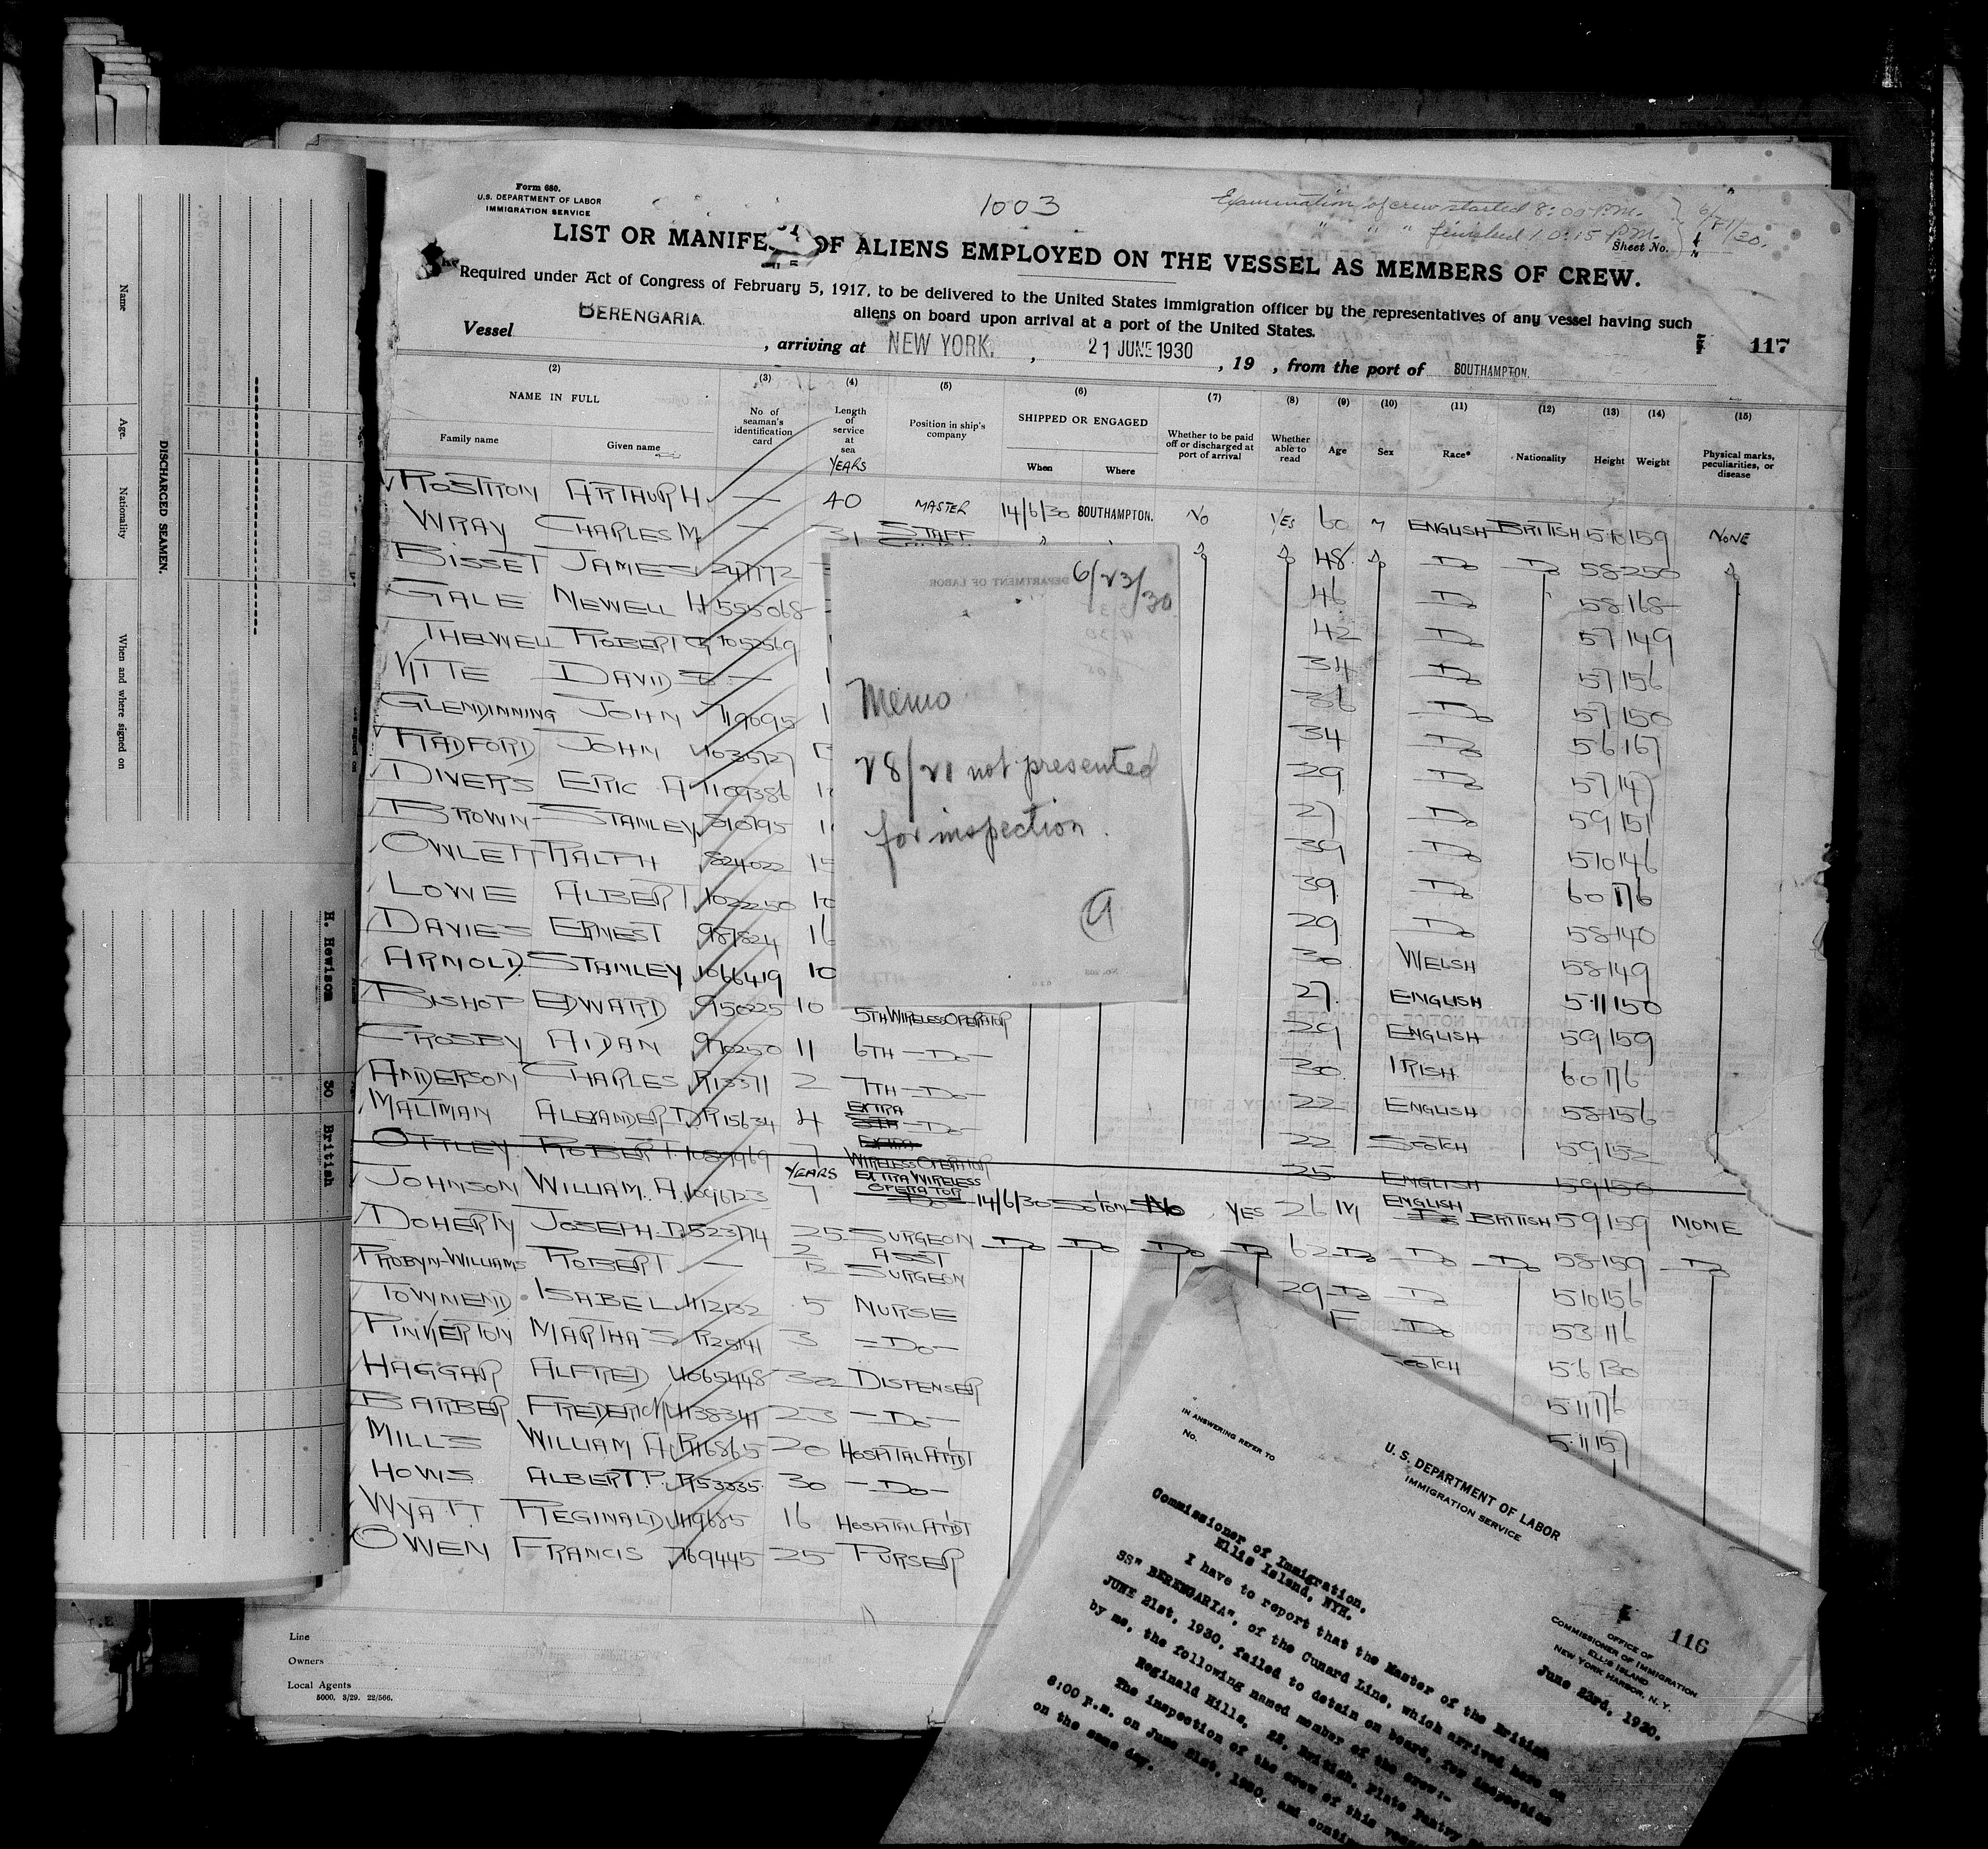 Form 680.
U.S. DEPARTMENT OF LABOR
IMMIGRATION SERVICE
1003
Examination of crew started 8:00 P.M.
" " " finished 10:15 P.M.
6/21/30.
Sheet No.
LIST OR MANIFE OF ALIENS EMPLOYED ON THE VESSEL AS MEMBERS OF CREW.
Required under Act of Congress of February 5, 1917, to be delivered to the United States immigration officer by the representatives of any vessel having such
aliens on board upon arrival at a port of the United States.
117
Vessel BERENGARIA. , arriving at NEW YORK. , 21 JUNE 1930 , 19 , from the port of SOUTHAMPTON.
(2) (3) (4) (5) (6) (7) (8) (9) (10) (11) (12) (13) (14) (15)
NAME IN FULL
Family name Given name
No. of seaman's identification card
Length of service at sea
YEARS
Position in ship's company
SHIPPED OR ENGAGED
When Where
Whether to be paid off or discharged at port of arrival
Whether able to read
Age Sex Race* Nationality Height Weight
Physical marks, peculiarities, or disease
ROSTRON ARTHUR H — 40 MASTER 14/6/30 SOUTHAMPTON. NO YES 60 M ENGLISH BRITISH 5·8 159 NONE
WRAY CHARLES M — 31 STAFF " 48 Do Do 58 250
BISSET JAMES 247172 46 Do 58 168
GALE NEWELL H 555068 42 Do 57 149
THELWELL ROBERT G 1052569 34 Do 57 156
VITTE DAVID — 36 Do 57 150
GLENDINNING JOHN 719695 34 Do 56 167
RADFORD JOHN 1035727 29 Do 57 147
DIVERS ERIC A 1109386 27 Do 59 151
BROWN STANLEY 810795 39 Do 510 146
OWLETT RALPH 824022 15 39 Do 60 176
LOWE ALBERT 1022250 10 29 Do 58 140
DAVIES ERNEST 987824 16 30 WELSH 58 149
ARNOLD STANLEY 1066419 10 27 ENGLISH 5·11 150
BISHOP EDWARD 950225 10 5TH WIRELESS OPERATOR 29 ENGLISH 59 159
CROSBY AIDAN 970250 11 6TH —Do— 30 IRISH 60 176
ANDERSON CHARLES R13371 2 7TH —Do— 22 ENGLISH 58 156
MALTMAN ALEXANDER D R15634 4 EXTRA —Do— 22 SCOTCH 59 152
OTTLEY ROBERT 1089969 7 EXTRA WIRELESS OPERATOR 25 ENGLISH 59 150
JOHNSON WILLIAM. A. 1096723 YEARS 7 EXTRA WIRELESS OPERATOR 14/6/30 SOTON NO YES 26 M ENGLISH BRITISH 59 159 NONE
DOHERTY JOSEPH. D. 523774 25 SURGEON Do Do Do Do 62 Do Do Do 58 159 Do
PROBYN-WILLIAMS ROBERT — ASST SURGEON 29 Do Do 510 156
TOWNEND ISABEL 1112132 5 NURSE F Do 53 116
PINKERTON MARTHA S R25141 3 —Do— SCOTCH 5·6 130
HAGGAR ALFRED 1065448 32 DISPENSER 5·11 176
BARBER FREDERICK 1138341 23 —Do— 5·11 157
MILLS WILLIAM A R116865 20 HOSPITAL ATTDT
HOWS ALBERT P. R53335 30 —Do—
WYATT REGINALD 1119685 16 HOSPITAL ATTDT
OWEN FRANCIS 769445 25 PURSER
Line
Owners
Local Agents
5000. 3/29. 22/566.
6/23/30
Memo
28/21 not presented
for inspection.
DEPARTMENT OF LABOR
Name
Age.
Nationality
When and where signed on
DISCHARGED SEAMEN.
H. Hewison 30 British
IN ANSWERING REFER TO
No.
U. S. DEPARTMENT OF LABOR
IMMIGRATION SERVICE
116
OFFICE OF
COMMISSIONER OF IMMIGRATION
ELLIS ISLAND
NEW YORK HARBOR, N. Y.
June 23rd, 1930.
Commissioner of Immigration,
Ellis Island, NYH.
I have to report that the Master of the British
SS" BERENGARIA", of the Cunard Line, which arrived here on
JUNE 21st, 1930, failed to detain on board, for inspection
by me, the following named member of the crew:-
Reginald Mills, 28, British, Plate Pantry
The inspection of the crew of this vessel
8:00 P.M. on June 21st, 1930, and
on the same day.